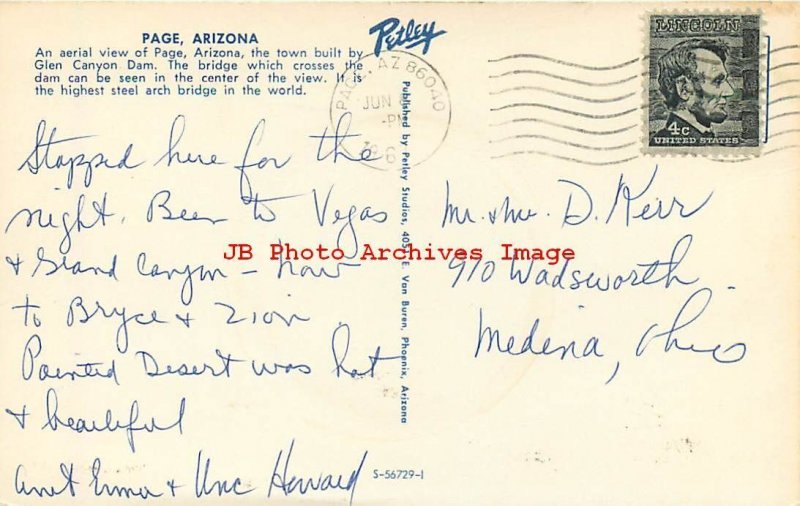 PAGE, ARIZONA
An aerial view of Page, Arizona, the town built by
Glen Canyon Dam. The bridge which crosses the
dam can be seen in the center of the view. It is
the highest steel arch bridge in the world.
Petley
PAGE, AZ 86040
JUN
PM
LINCOLN
4c
UNITED STATES
Published by Petley Studios, 4051 E. Van Buren, Phoenix, Arizona
Stopped here for the
night. Been to Vegas
& Grand Canyon – now
to Bryce & Zion.
Painted Desert was hot
& beautiful
Aunt Erma & Unc Howard
Mr. & Mrs. D. Kerr
910 Wadsworth.
Medina, Ohio
JB Photo Archives Image
S-56729-1